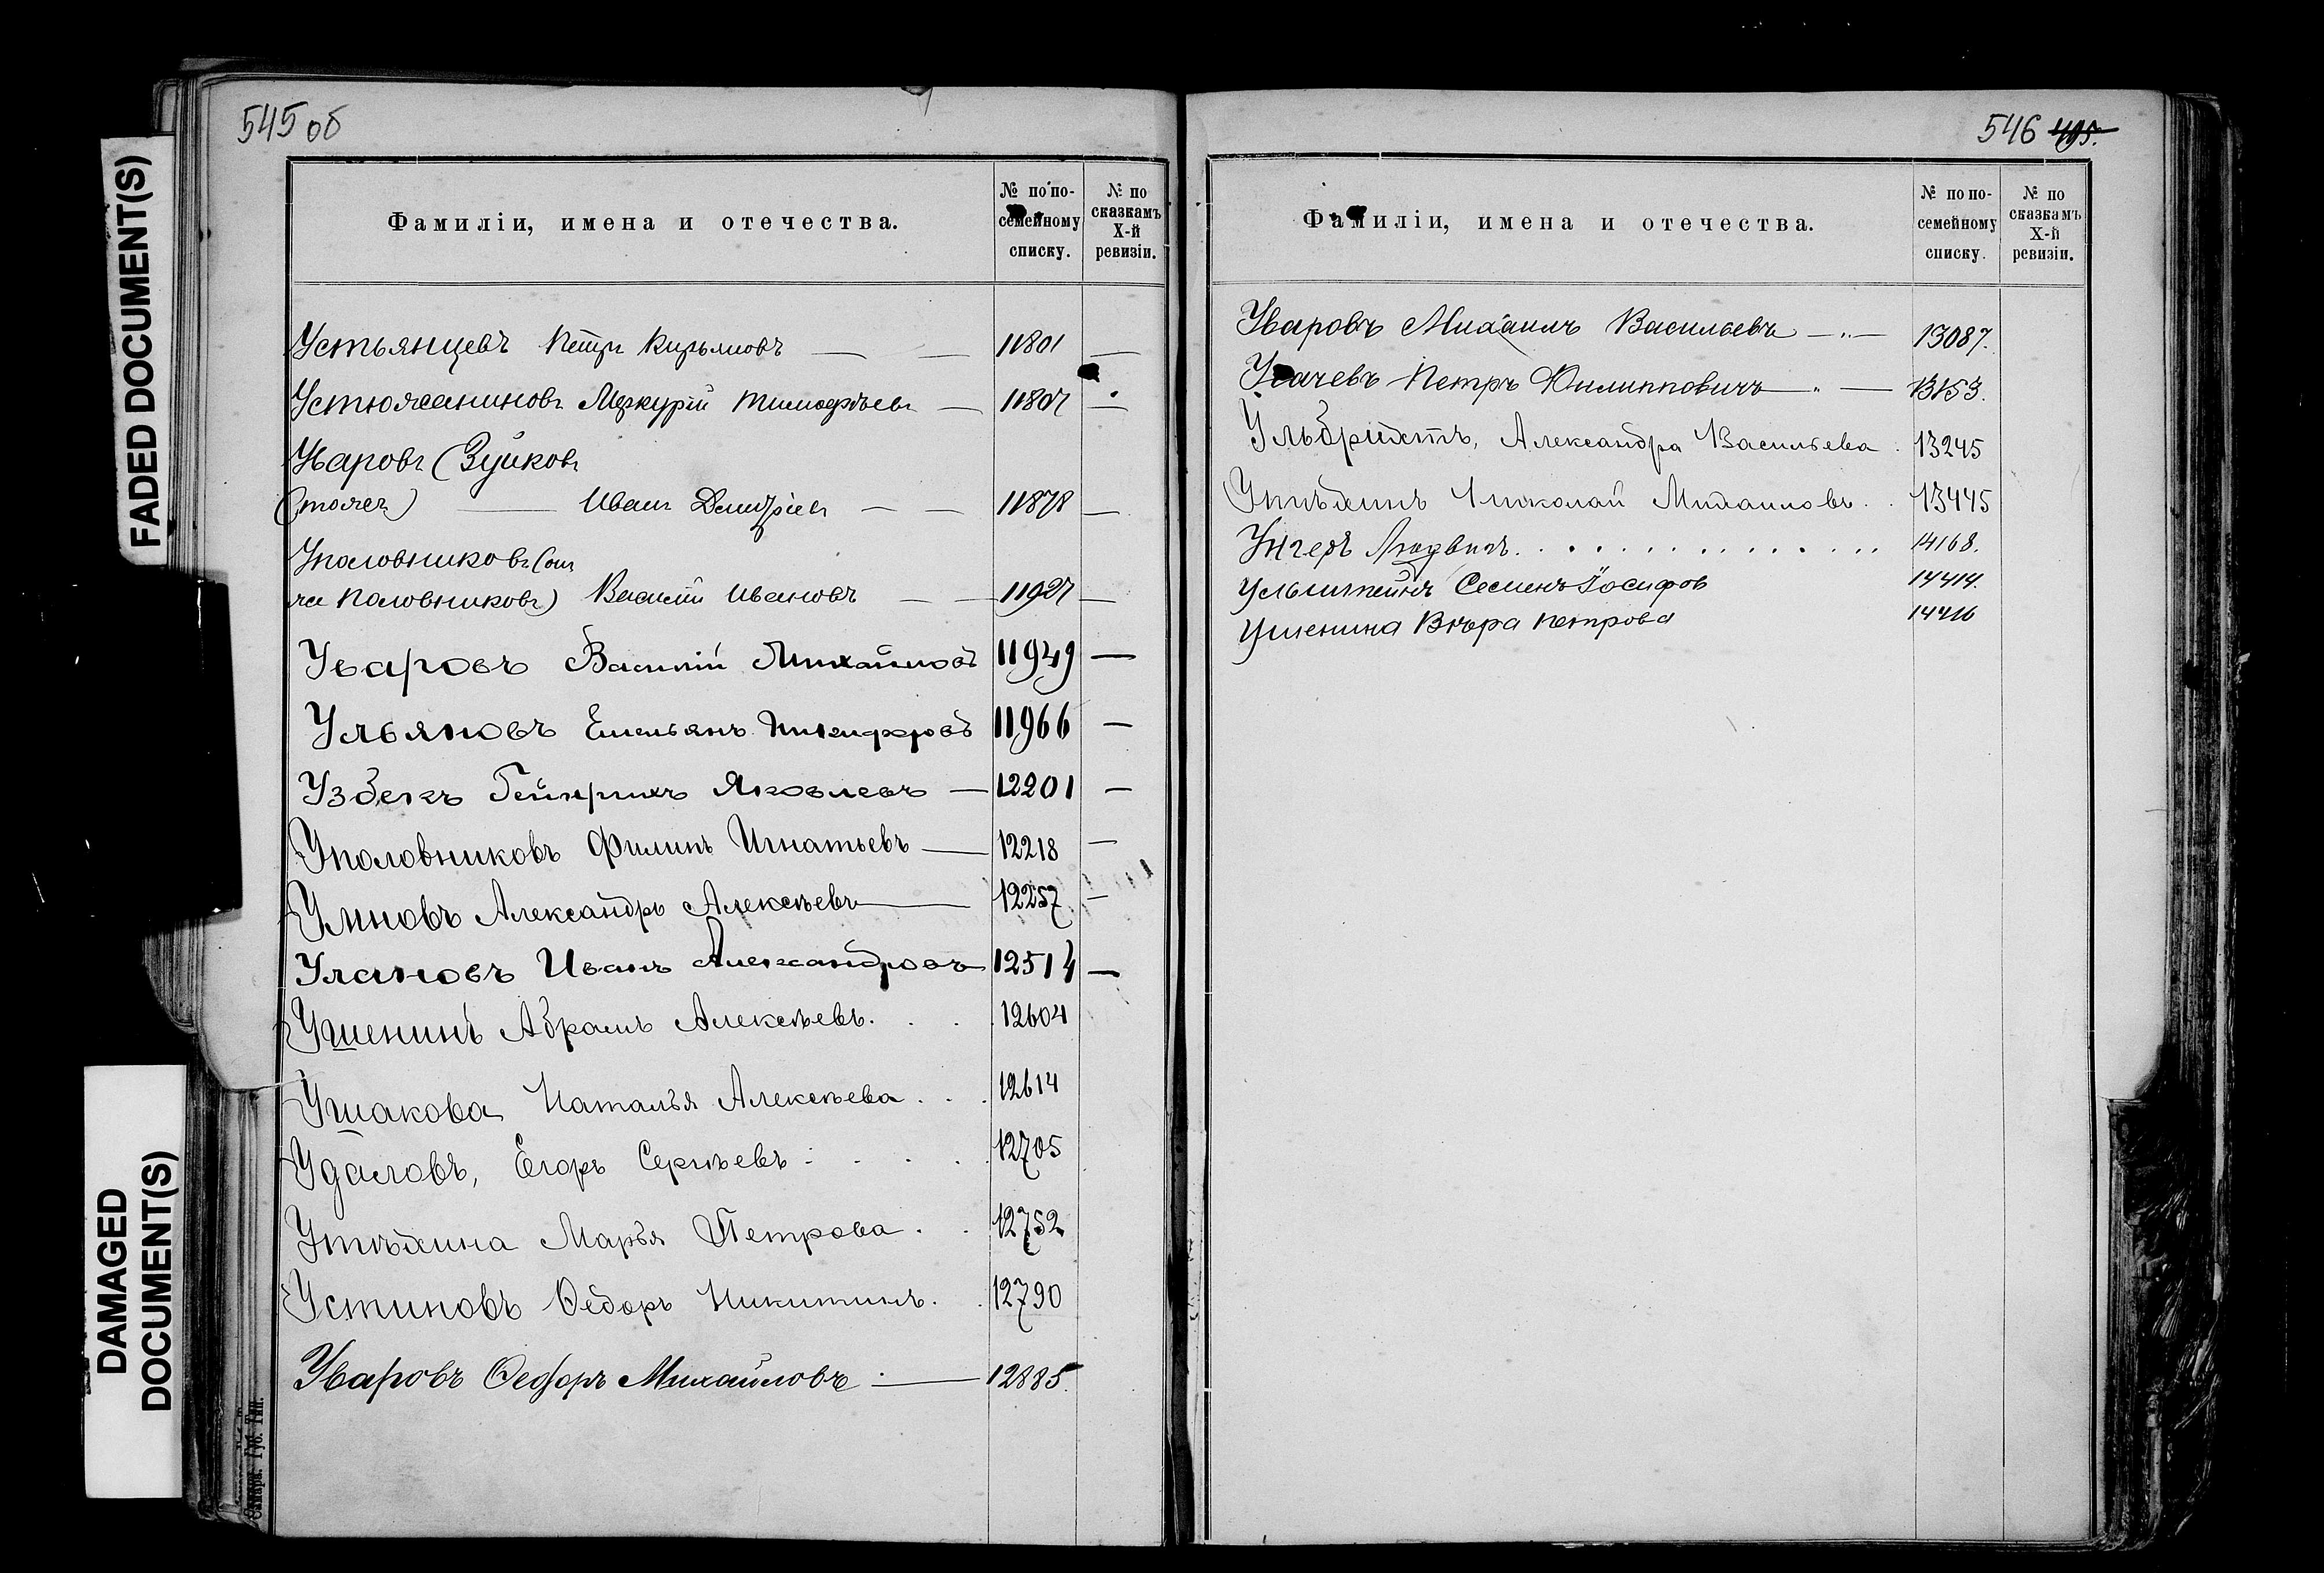 545 об
Фамиліи, имена и отечества.
№ по по-семейному списку.
№ по сказкамъ X-й ревизіи.
Устьянцевъ Петръ Кирьяновъ — — 11801 —
Устюжаниновъ Меркурій Тимофѣевъ — 11807 —
Уваровъ (Зуйковъ
(тожъ) — Иванъ Дмитріевъ — — 11878 —
Уполовниковъ (онъ
же Половниковъ) Василій Ивановъ — — 11927 —
Уваровъ Василій Михайловъ 11949 —
Ульяновъ Емельянъ Никифоровъ 11966 —
Узбекъ Гейнрихъ Яковлевъ — 12201 —
Уполовниковъ Филипъ Игнатьевъ — 12218 —
Умновъ Александръ Алексѣевъ — 12257 —
Улановъ Иванъ Александровъ 12514 —
Ушенинъ Абрамъ Алексѣевъ. . . . 12604
Ушакова Наталья Алексѣева . . . 12614
Удаловъ, Егоръ Сергѣевъ . . . . 12705
Утѣхина Марья Петрова . . 12752
Устиновъ Ѳедоръ Никитинъ. . 12790
Уваровъ Ѳедоръ Михайловъ — 12885.
Самара. Губ. Тип.
FADED DOCUMENT(S)
DAMAGED
DOCUMENT(S)
546 495.
Фамиліи, имена и отечества.
№ по по-семейному списку.
№ по сказкамъ X-й ревизіи.
Уваровъ Михаилъ Васильевъ — „ — 13087.
Усачевъ Петръ Филипповичъ — „ — 13153.
Ульбрихтъ, Александра Васильева . 13245
Утѣхинъ Николай Михаиловъ . . 13445
Унгеръ Людвигъ. . . . . . . . . . . . . . 14168.
Ульштейнъ Семенъ Іосифов 14414.
Ушенина Вѣра Петрова 14416